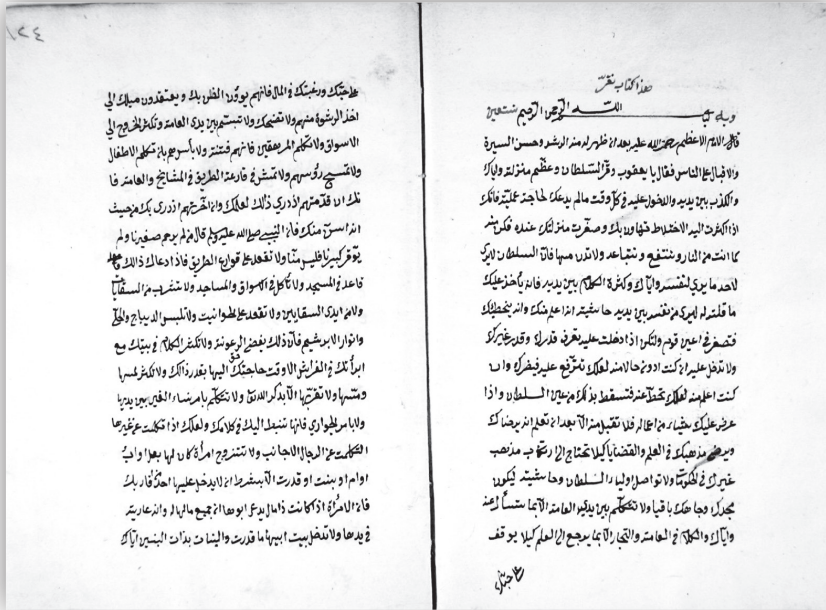 هذا كتاب
وبه بسم الله الرحمن الرحيم نستعين
قال الامام الاعظم رحمة الله عليه بعد ان ظهر له منه الرشد وحسن السيرة
والاقبال على الناس فقال يا يعقوب وقر السلطان وعظم منزلته واياك
والكذب بين يديه والدخول عليه في كل وقت مالم يدعك لحاجة علمية فانك
اذا اكثرت اليه الاختلاط تهاون بك وصغرت منزلتك عنده فكن منه
كما انت من النار وتنتفع وتتباعد ولا تدن منها فان السلطان لا يرى
لاحد ما يرى لنفسه واياك وكثرة الكلام بين يديه فانه يأخذ عليك
ما قلته ليرى من نفسه بين يدي حاشيته انه اعلم منك وانه يخطئك
فتصغر في اعين قومه ولتكن اذا دخلت عليه تعرف قدرك وقدر غيرك
ولا تدخل عليه ان كنت ادون حالا منه لعلك تترفع عليه فيضرك وان
كنت اعلم منه لعلك تحط عنه فتسقط بذلك من عين السلطان واذا
عرض عليك شيئا من اعماله فلا تقبل منه الا بعد ان تعلم انه يرضاك
ويرضى مذهبك في العلم والقضايا كيلا تحتاج الى ارتكاب مذهب
غيرك في الحكومات ولا تواصل اولياء السلطان وحاشيته ليكون
مجدك وجاهك باقيا ولا تتكلم بين يدي العامة الا بما تسأل عنه
واياك والكلام في المعاملة والتجار الا بما يرجع الى العلم كيلا يوقف
١٢٤
على حبك ورغبتك في المال فانهم يسوؤن الظن بك ويعتقدون ميلك الى
اخذ الرشوة منهم ولا تضحك ولا تبتسم بين يدى العامة ولا تكثر الخروج الى
الاسواق ولا تكلم المراهقين فانهم فتنة ولا بأس بان تكلم الاطفال
وتمسح رؤسهم ولا تمش في قارعة الطريق في المشايخ والعامة فا
نك ان قدمتهم ازدري ذلك لعلمك وان اخرتهم ازدري بك من حيث
انه اسن منك فان النبي صلى الله عليه وسلم قال من لم يرحم صغيرنا ولم
يوقر كبيرنا فليس منا ولا تقعد على قوارع الطريق فاذا دعاك ذلك
فاقعد في المسجد ولا تأكل في الاسواق والمساجد ولا تشرب من السقايات
ولا من ايدى السقايين ولا تقعد على الحوانيت ولا تلبس الديباج والحلي
وانواع الابريشم فان ذلك يفضي الى الرعونة ولا تكثر الكلام في بيتك مع
امرأتك في الفراش الا وقت حاجتك اليها بقدر ذلك ولا تكثر لمسها
ومسها ولا تقربها الا بذكر الله تعالى ولا تتكلم بامر نساء الغير بين يديها
ولا بامر الجواري فانها تنبسط اليك في كلامك ولعلك اذا تكلمت عن غيرها
تكلمت عن الرجال الاجانب ولا تتزوج امرأة كان لها بعل او اب
او ام او بنت ان قدرت الا بشرط ان لا يدخل عليها احد من اقاربك
فان المرأة اذا كانت ذا مال يدعي ابوها ان جميع مالها له وانه عارية
في يدها ولا تدخل بيت ابيها ما قدرت